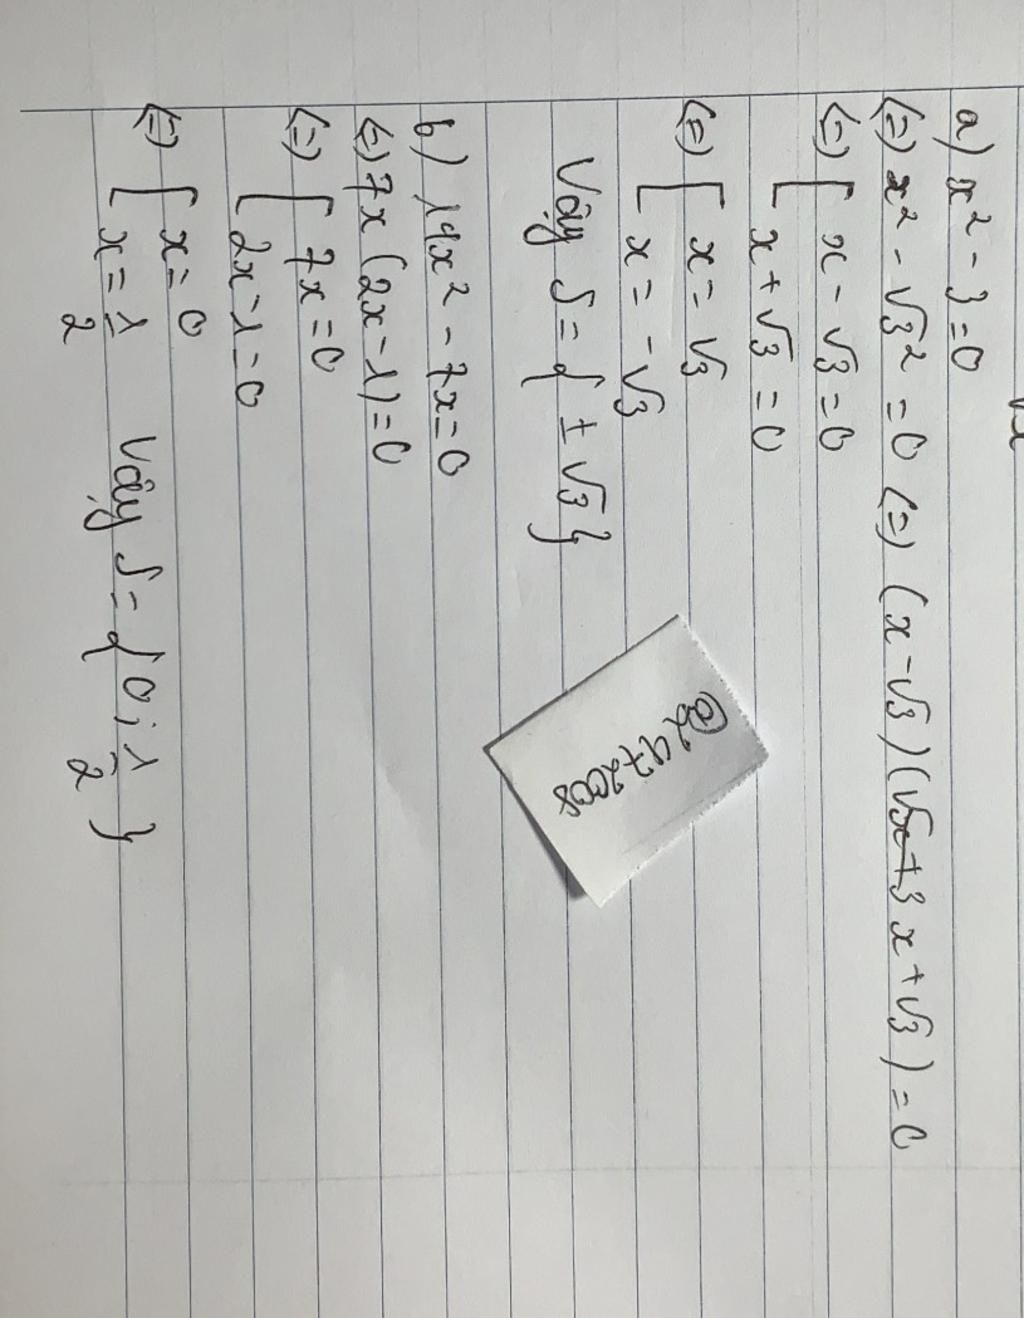 a) x² - 3 = 0
(=) x² - √3² = 0 (=) (x - √3)(x + √3) = 0
(=) [ x - √3 = 0
x + √3 = 0
(=) [ x = √3
x = -√3
Vậy S = { ± √3 }
b) 14x² - 7x = 0
(=) 7x (2x - 1) = 0
(=) [ 7x = 0
2x - 1 = 0
(=) [ x = 0
x = 1/2 Vậy S = { 0 ; 1/2 }
@2472008